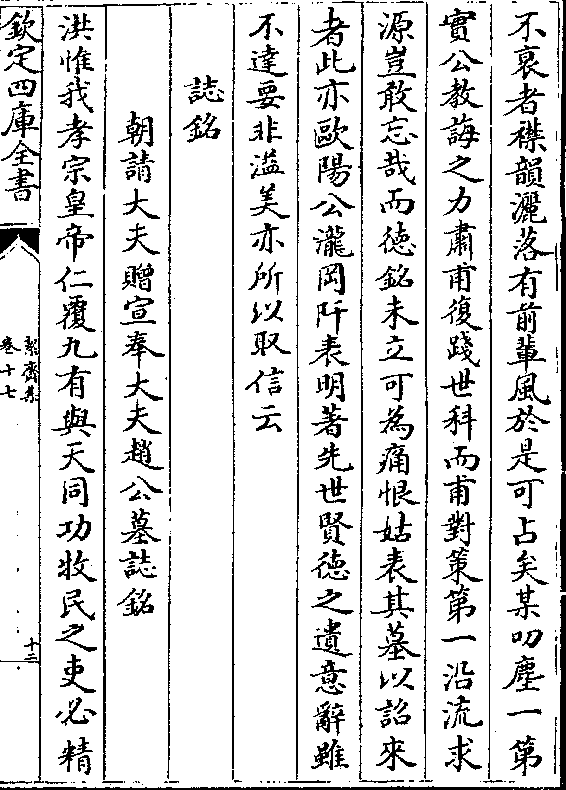 不衰者襟韻灑落有前輩風於是可占矣某叨塵一第
實公教誨之力肅甫復踐世科而甫對策第一沿流求
源豈敢忘哉而徳銘未立可為痛恨姑表其墓以詔來
者此亦歐陽公瀧岡阡表明著先世賢徳之遺意辭雖
不達要非溢美亦所以取信云
誌銘
朝請大夫贈宣奉大夫趙公墓誌銘
洪惟我孝宗皇帝仁覆九有與天同功牧民之吏必精
欽定四庫全書
絜齋集
卷十七
十三